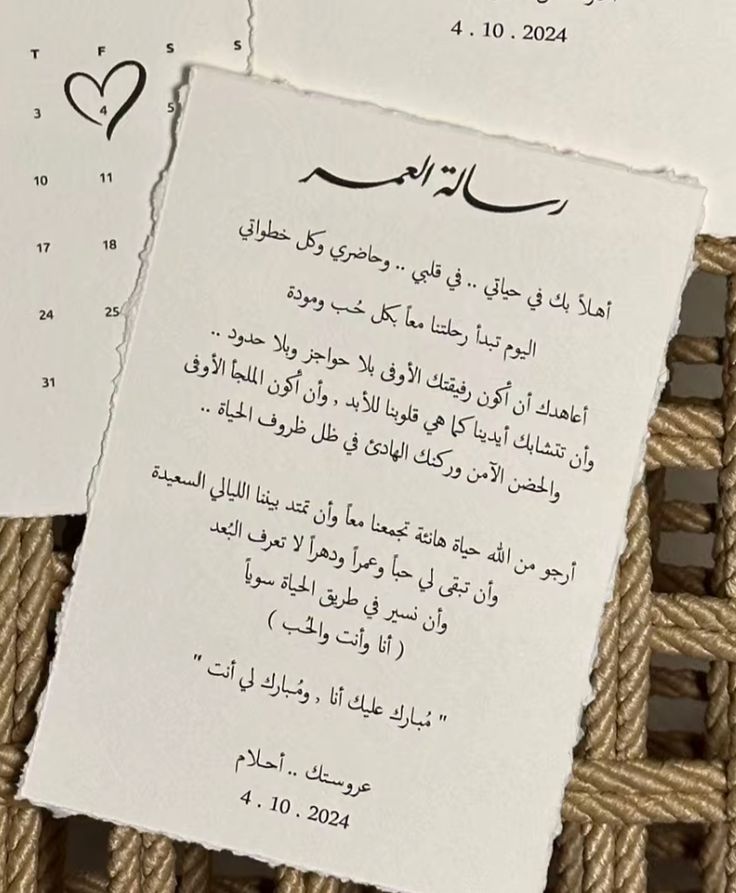 4 . 10 . 2024
T F S S
3 4 5
10 11
17 18
24 25
31
رسالة العمر
أهلاً بك في حياتي .. في قلبي .. وحاضري وكل خطواتي
اليوم تبدأ رحلتنا معاً بكل حُب ومودة
أعاهدك أن أكون رفيقتك الأوفى بلا حواجز وبلا حدود ..
وأن تتشابك أيدينا كما هي قلوبنا للأبد , وأن أكون الملجأ الأوفى
والحضن الآمن وركنك الهادئ في ظل ظروف الحياة ..
أرجو من الله حياة هانئة تجمعنا معاً وأن تمتد بيننا الليالي السعيدة
وأن تبقى لي حباً وعمراً ودهراً لا تعرف البُعد
وأن نسير في طريق الحياة سوياً
( أنا وأنت والحُب )
" مُبارك عليك أنا , ومُبارك لي أنت "
عروستك .. أحلام
4 . 10 . 2024